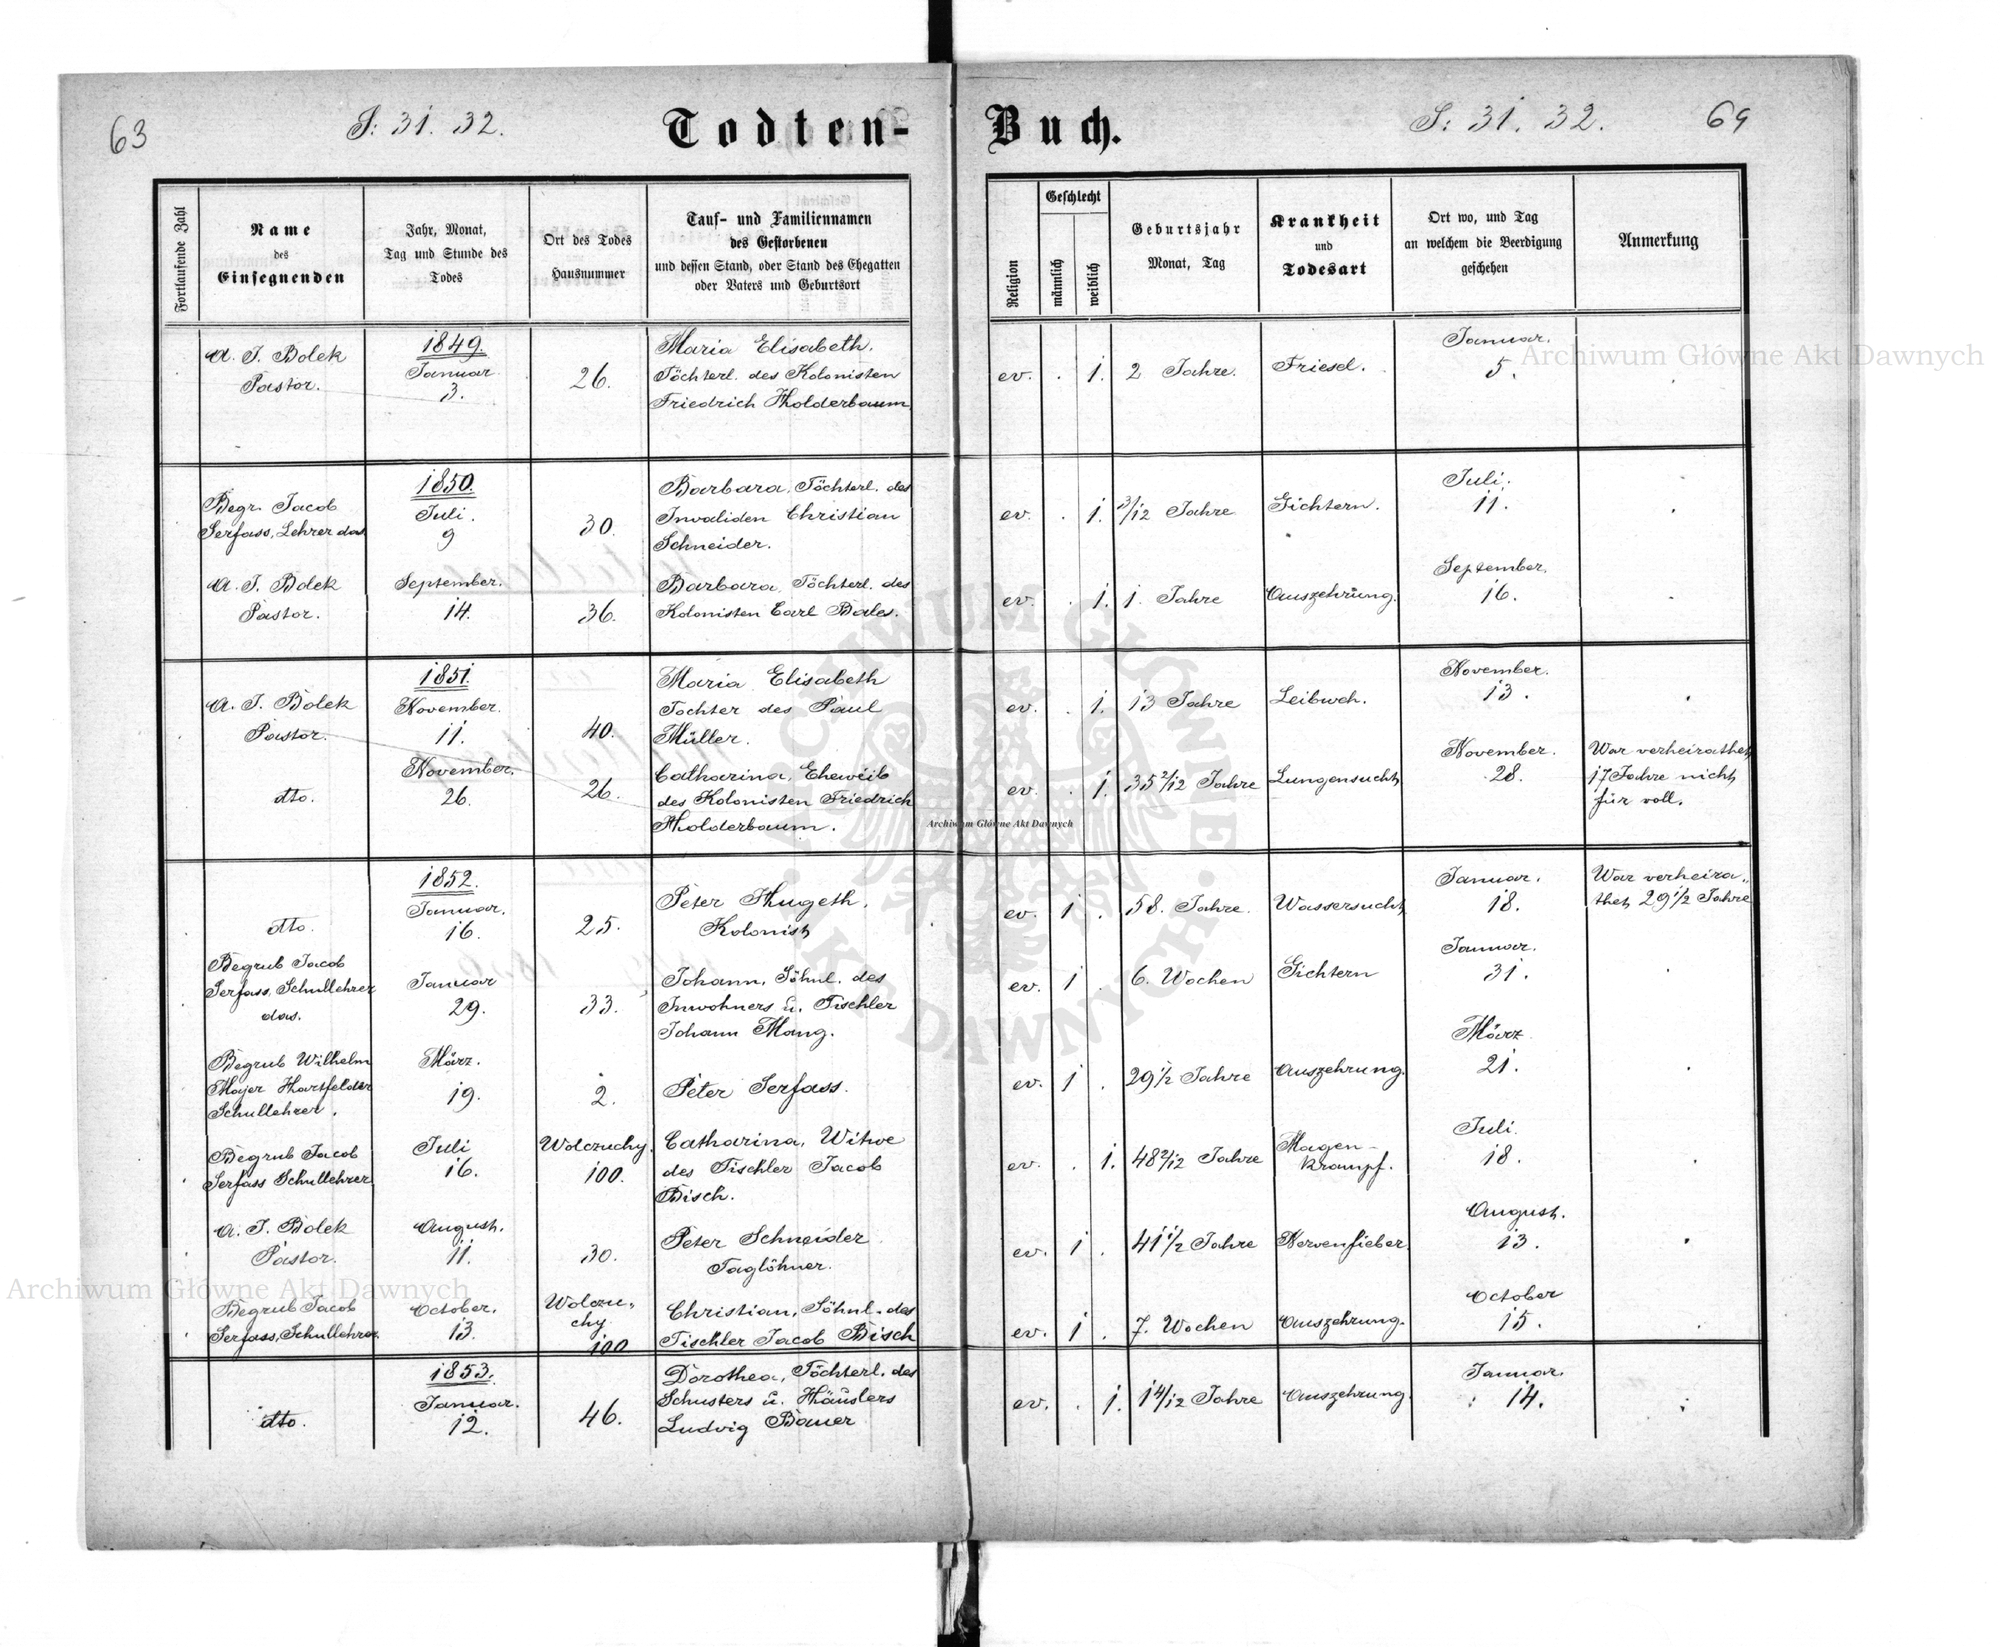 63
S: 31. 32.
Todten-
Buch.
S: 31. 32.
69
Fortlaufende Zahl
Name
des
Einsegnenden
Jahr, Monat,
Tag und Stunde des
Todes
Ort des Todes
Hausnummer
Tauf- und Familiennamen
des Gestorbenen
und dessen Stand, oder Stand des Ehegatten
oder Vaters und Geburtsort
Religion
Geschlecht
männlich
weiblich
Geburtsjahr
Monat, Tag
Krankheit
und
Todesart
Ort wo, und Tag
an welchem die Beerdigung
geschehen
Anmerkung
A. T. Bolek
Pastor.
1849.
Januar
3.
26.
Maria Elisabeth,
Töchterl. des Kolonisten
Friedrich Holderbaum
ev. . 1. 2 Jahre. Friesel.
Januar.
5.
Begr. Jacob
Serfass, Lehrer das.
1850.
Juli.
9
30.
Barbara, Töchterl. des
Invaliden Christian
Schneider.
ev. . 1. 3/12 Jahre Gichtern.
Juli.
11.
A. T. Bolek
Pastor.
September.
14.
36.
Barbara, Töchterl. des
Kolonisten Carl Bales.
ev. . 1. 1. Jahre Auszehrung.
September.
16.
A. T. Bolek
Pastor.
1851.
November.
11.
40.
Maria Elisabeth
Tochter des Paul
Müller.
ev. . 1. 13 Jahre Leibweh.
November.
13.
dto.
November.
26.
26.
Catharina, Eheweib
des Kolonisten Friedrich
Holderbaum.
ev. . 1. 35 2/12 Jahre Lungensucht
November.
28.
War verheirathet
17 Jahre nicht
für voll.
dto.
1852.
Januar.
16.
25.
Peter Hugeth,
Kolonist
ev. 1 . 58. Jahre. Wassersucht
Januar.
18.
War verheira„
thet 29 1/2 Jahre
Begrub Jacob
Serfass, Schullehrer
das.
Januar
29.
33.
Johann, Söhnl. des
Inwohners u. Tischler
Johann Mang.
ev. 1 6. Wochen Gichtern
Januar.
31.
Begrub Wilhelm
Majer Hartfelder
Schullehrer.
März.
19.
2.
Peter Serfass.
ev. 1 . 29 1/2 Jahre Auszehrung.
März
21.
Begrub Jacob
Serfass Schullehrer
Juli
16.
Wolczuchy.
100.
Catharina, Witwe
des Tischler Jacob
Bisch.
ev. . 1. 48 2/12 Jahre
Magen-
krampf.
Juli.
18.
A. T. Bolek
Pastor.
August.
11.
30.
Peter Schneider
Taglöhner.
ev. 1 . 41 1/2 Jahre Nervenfieber.
August.
13.
Begrub Jacob
Serfass, Schullehrer
October.
13.
Wolczu„
chy
100
Christian, Söhnl. des
Tischler Jacob Bisch
ev. 1 . 7. Wochen Auszehrung.
October
15.
dto.
1853.
Januar.
12.
46.
Dorothea, Töchterl. des
Schusters u. Häuslers
Ludvig Bauer
ev. . 1. 1 4/12 Jahre Auszehrung.
Januar.
14.
Archiwum Główne Akt Dawnych
Archiwum Główne Akt Dawnych
Archiwum Główne Akt Dawnych
ARCHIWUM GŁÓWNE · AKT DAWNYCH ·